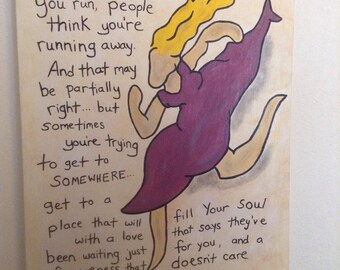 you run, people
think you're
running away.
And that may
be partially
right... but
sometimes
you're trying
to get to
SOMEWHERE...
get to a
place that will
with a love
been waiting just
fill Your Soul
that says they've
for you, and a
doesn't care